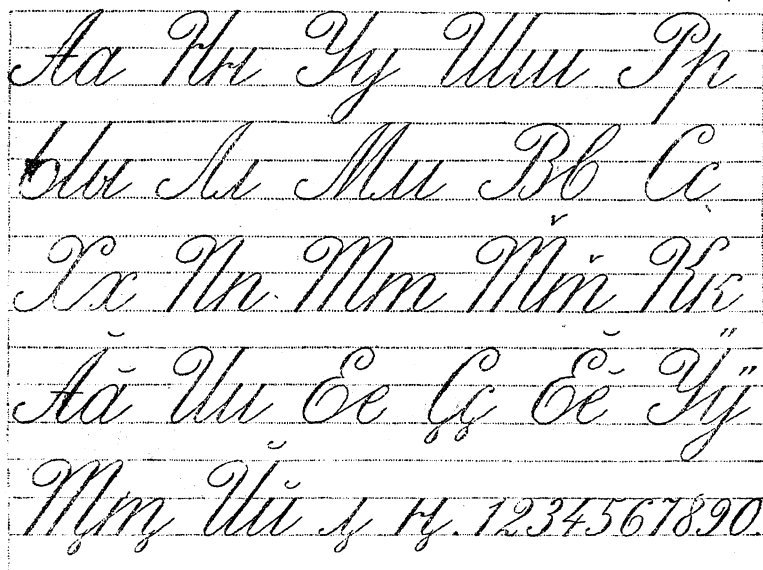 Аа Нн Уу Шш Рр
Ыы Лл Мм Вв Сс
Хх Пп Тт Т̌т̌ Кк
Ӑӑ Ии Ее Ҫҫ Ӗӗ Ӳӳ
Т̡т̡ Йй ԡ ԣ. 1234567890.